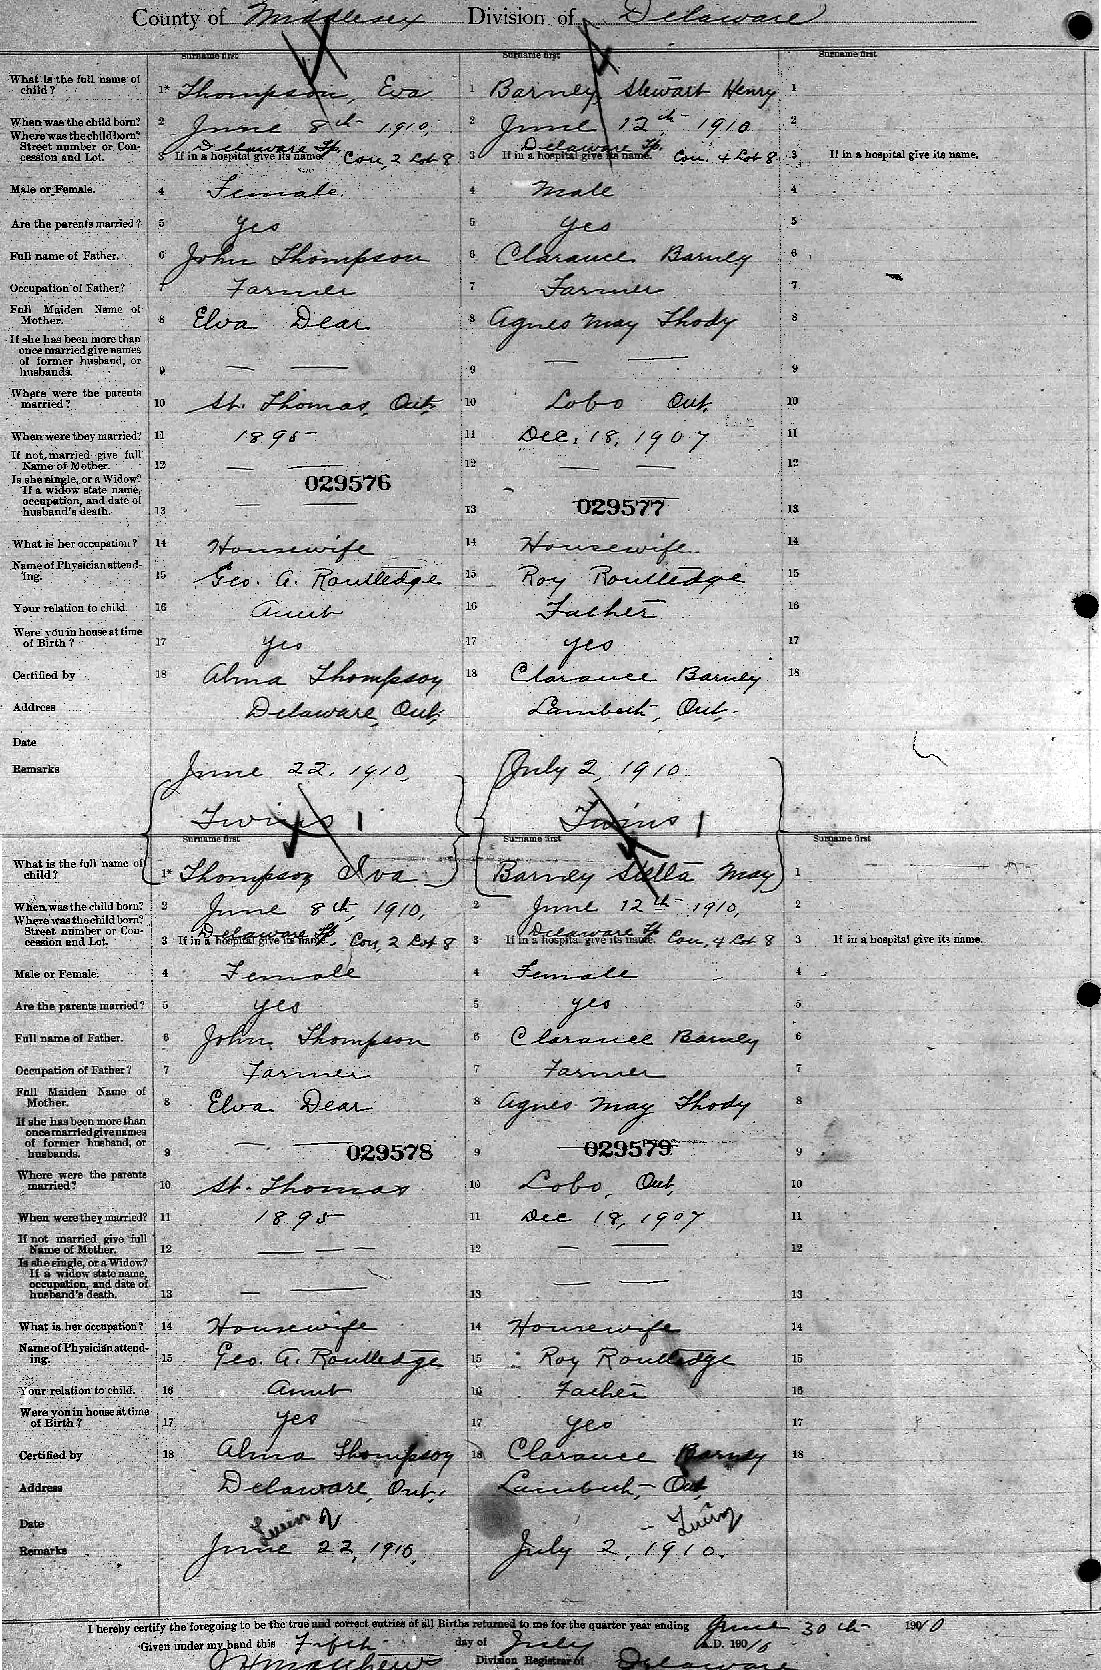 County of Middlesex Division of Delaware
Surname first Surname first Surname first
What is the full name of child? 1* Thompson, Eva 1 Barney, Stewart Henry 1
When was the child born? 2 June 8th 1910, 2 June 12th 1910 2
Where was the child born? Delaware Tp. Delaware Tp.
Street number or Concession and Lot. 3 If in a hospital give its name. Con, 2 Lot 8 3 If in a hospital give its name. Con. 4 Lot 8 3 If in a hospital give its name.
Male or Female. 4 Female 4 Male 4
Are the parents married? 5 yes 5 yes 5
Full name of Father. 6 John Thompson 6 Clarance Barney 6
Occupation of Father? 7 Farmer 7 Farmer 7
Full Maiden Name of Mother. 8 Elva Dear 8 Agnes May Thody 8
If she has been more than once married give names of former husband, or husbands. 9 — — 9 — — 9
Where were the parents married? 10 St. Thomas, Ont. 10 Lobo Ont. 10
When were they married? 11 1895 11 Dec. 18, 1907 11
If not married give full Name of Mother. 12 — — 12 — — 12
029576
Is she single, or a Widow? If a widow state name, occupation, and date of husband's death. 13 — — 13 029577 13
What is her occupation? 14 Housewife 14 Housewife 14
Name of Physician attending. 15 Geo. A. Routledge 15 Roy Routledge 15
Your relation to child. 16 Aunt 16 Father 16
Were you in house at time of Birth? 17 yes 17 yes 17
Certified by 18 Alma Thompson 18 Clarance Barney 18
Address Delaware, Ont. Lambeth, Ont.
Date
Remarks June 22, 1910, July 2, 1910.
Twins 1 Twins 1
Surname first Surname first Surname first
What is the full name of child? 1* Thompson Iva 1 Barney Stella May 1
When was the child born? 2 June 8th, 1910, 2 June 12th 1910, 2
Where was the child born? Delaware Tp. Delaware Tp
Street number or Concession and Lot. 3 If in a hospital give its name. Con, 2 Lot 8 3 If in a hospital give its name. Con, 4 Lot 8 3 If in a hospital give its name.
Male or Female. 4 Female 4 Female 4
Are the parents married? 5 yes 5 yes 5
Full name of Father. 6 John Thompson 6 Clarance Barney 6
Occupation of Father? 7 Farmer 7 Farmer 7
Full Maiden Name of Mother. 8 Elva Dear 8 Agnes May Thody 8
If she has been more than once married give names of former husband, or husbands. 9 — — 029578 9 029579 9
Where were the parents married? 10 St. Thomas 10 Lobo, Ont. 10
When were they married? 11 1895 11 Dec 18, 1907 11
If not married give full Name of Mother. 12 — — — 12 — — 12
Is she single, or a Widow? If a widow state name, occupation, and date of husband's death. 13 — — 13 — — 13
What is her occupation? 14 Housewife 14 Housewife 14
Name of Physician attending. 15 Geo. A. Routledge 15 Roy Routledge 15
Your relation to child. 16 Aunt 16 Father 16
Were you in house at time of Birth? 17 yes 17 yes 17
Certified by 18 Alma Thompson 18 Clarance Barney 18
Address Delaware, Ont. Lambeth, Ont
Date
Remarks June 22, 1910, July 2, 1910.
I hereby certify the foregoing to be the true and correct entries of all Births returned to me for the quarter year ending June 30th 1910
Given under my hand this Fifth day of July A.D. 1910
Matthews Division Registrar of Delaware